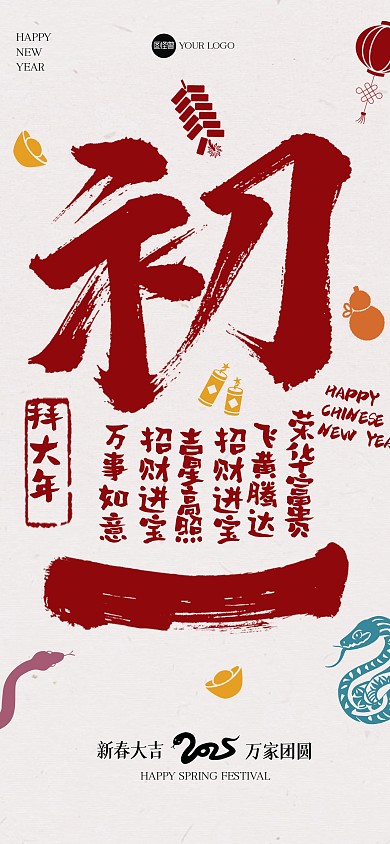 HAPPY
NEW
YEAR
图怪兽
YOUR LOGO
初
HAPPY
CHINESE
NEW YEA
拜大年
荣华富贵
飞黄腾达
招财进宝
吉星高照
招财进宝
万事如意
一
新春大吉 2025 万家团圆
HAPPY SPRING FESTIVAL